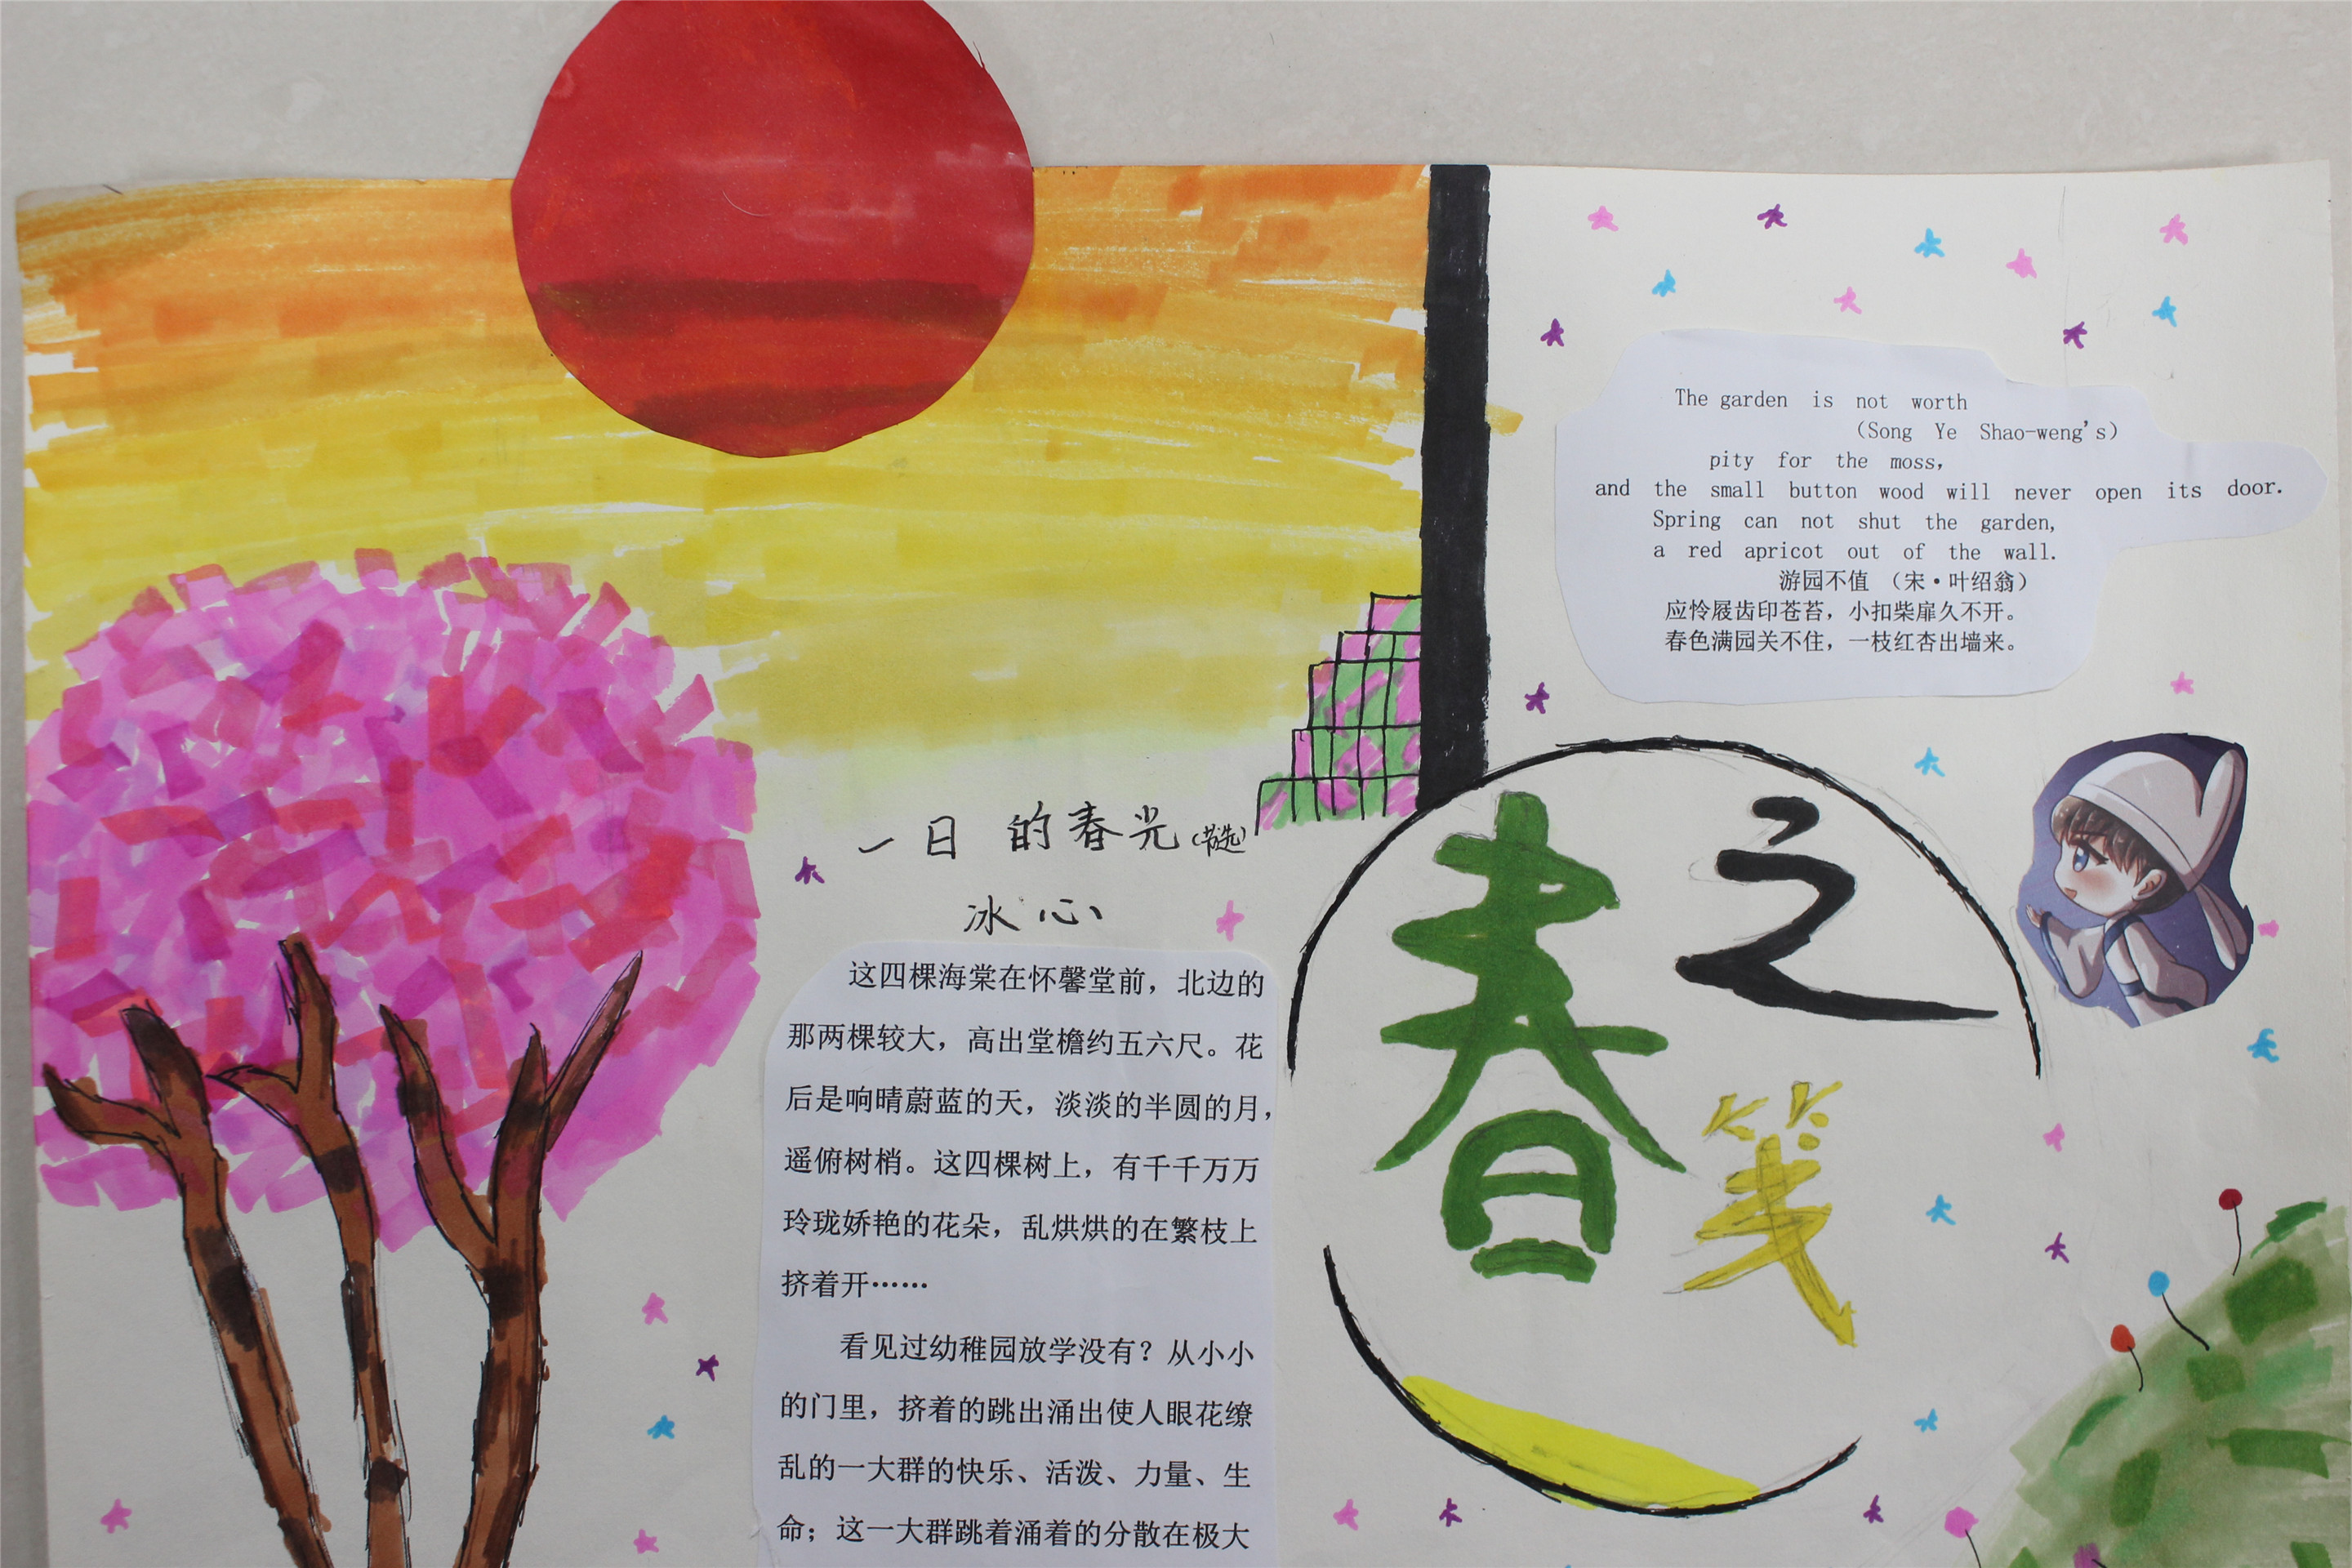 The garden is not worth
（Song Ye Shao-weng's）
pity for the moss,
and the small button wood will never open its door.
Spring can not shut the garden,
a red apricot out of the wall.
游园不值 （宋·叶绍翁）
应怜屐齿印苍苔，小扣柴扉久不开。
春色满园关不住，一枝红杏出墙来。
春之笺
一日的春光（节选）
冰心
这四棵海棠在怀馨堂前，北边的
那两棵较大，高出堂檐约五六尺。花
后是响晴蔚蓝的天，淡淡的半圆的月，
遥俯树梢。这四棵树上，有千千万万
玲珑娇艳的花朵，乱烘烘的在繁枝上
挤着开……
看见过幼稚园放学没有？从小小
的门里，挤着的跳出涌出使人眼花缭
乱的一大群的快乐、活泼、力量、生
命；这一大群跳着涌着的分散在极大